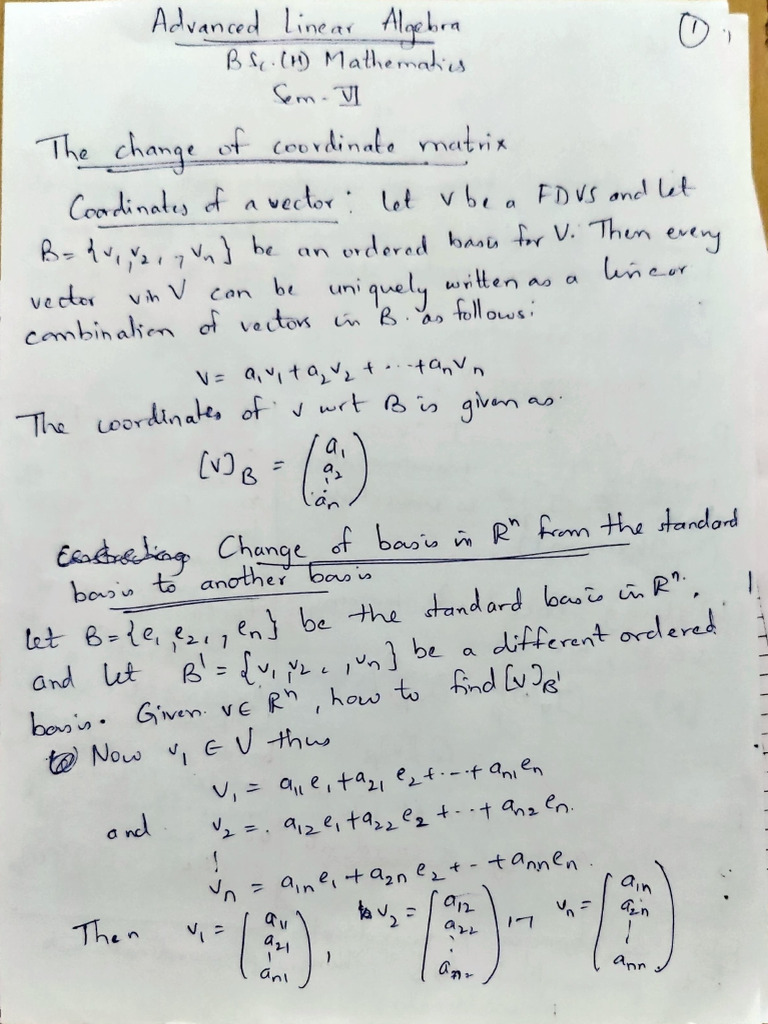 Advanced Linear Algebra
①
B Sc. (H) Mathematics
Sem - VI
The change of coordinate matrix
Coordinates of a vector : let V be a FDVS and let
B = {v₁, v₂, , vₙ} be an ordered basis for V. Then every
vector v in V can be uniquely written as a linear
combination of vectors in B. as follows:
v = a₁v₁ + a₂v₂ + ... + aₙvₙ
The coordinates of v wrt B is given as.
[v]_B = (a₁
a₂
⋮
aₙ)
Change of basis in Rⁿ from the standard
basis to another basis
let B = {e₁, e₂, , eₙ} be the standard basis in Rⁿ.
and let B' = {v₁, v₂ , , vₙ} be a different ordered
basis. Given v ∈ Rⁿ, how to find [v]_B'
Now v₁ ∈ V thus
v₁ = a₁₁e₁ + a₂₁e₂ + --- + aₙ₁eₙ
and v₂ = a₁₂e₁ + a₂₂e₂ + ... + aₙ₂eₙ.
⋮
vₙ = a₁ₙe₁ + a₂ₙe₂ + - + aₙₙeₙ.
Then v₁ = (a₁₁ a₂₁ ⋮ aₙ₁), v₂ = (a₁₂ a₂₂ ⋮ aₙ₂), -, vₙ = (a₁ₙ a₂ₙ ⋮ aₙₙ)